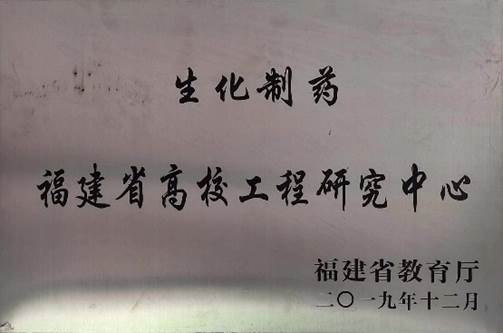 生化制药
福建省高校工程研究中心
福建省教育厅
二〇一九年十二月